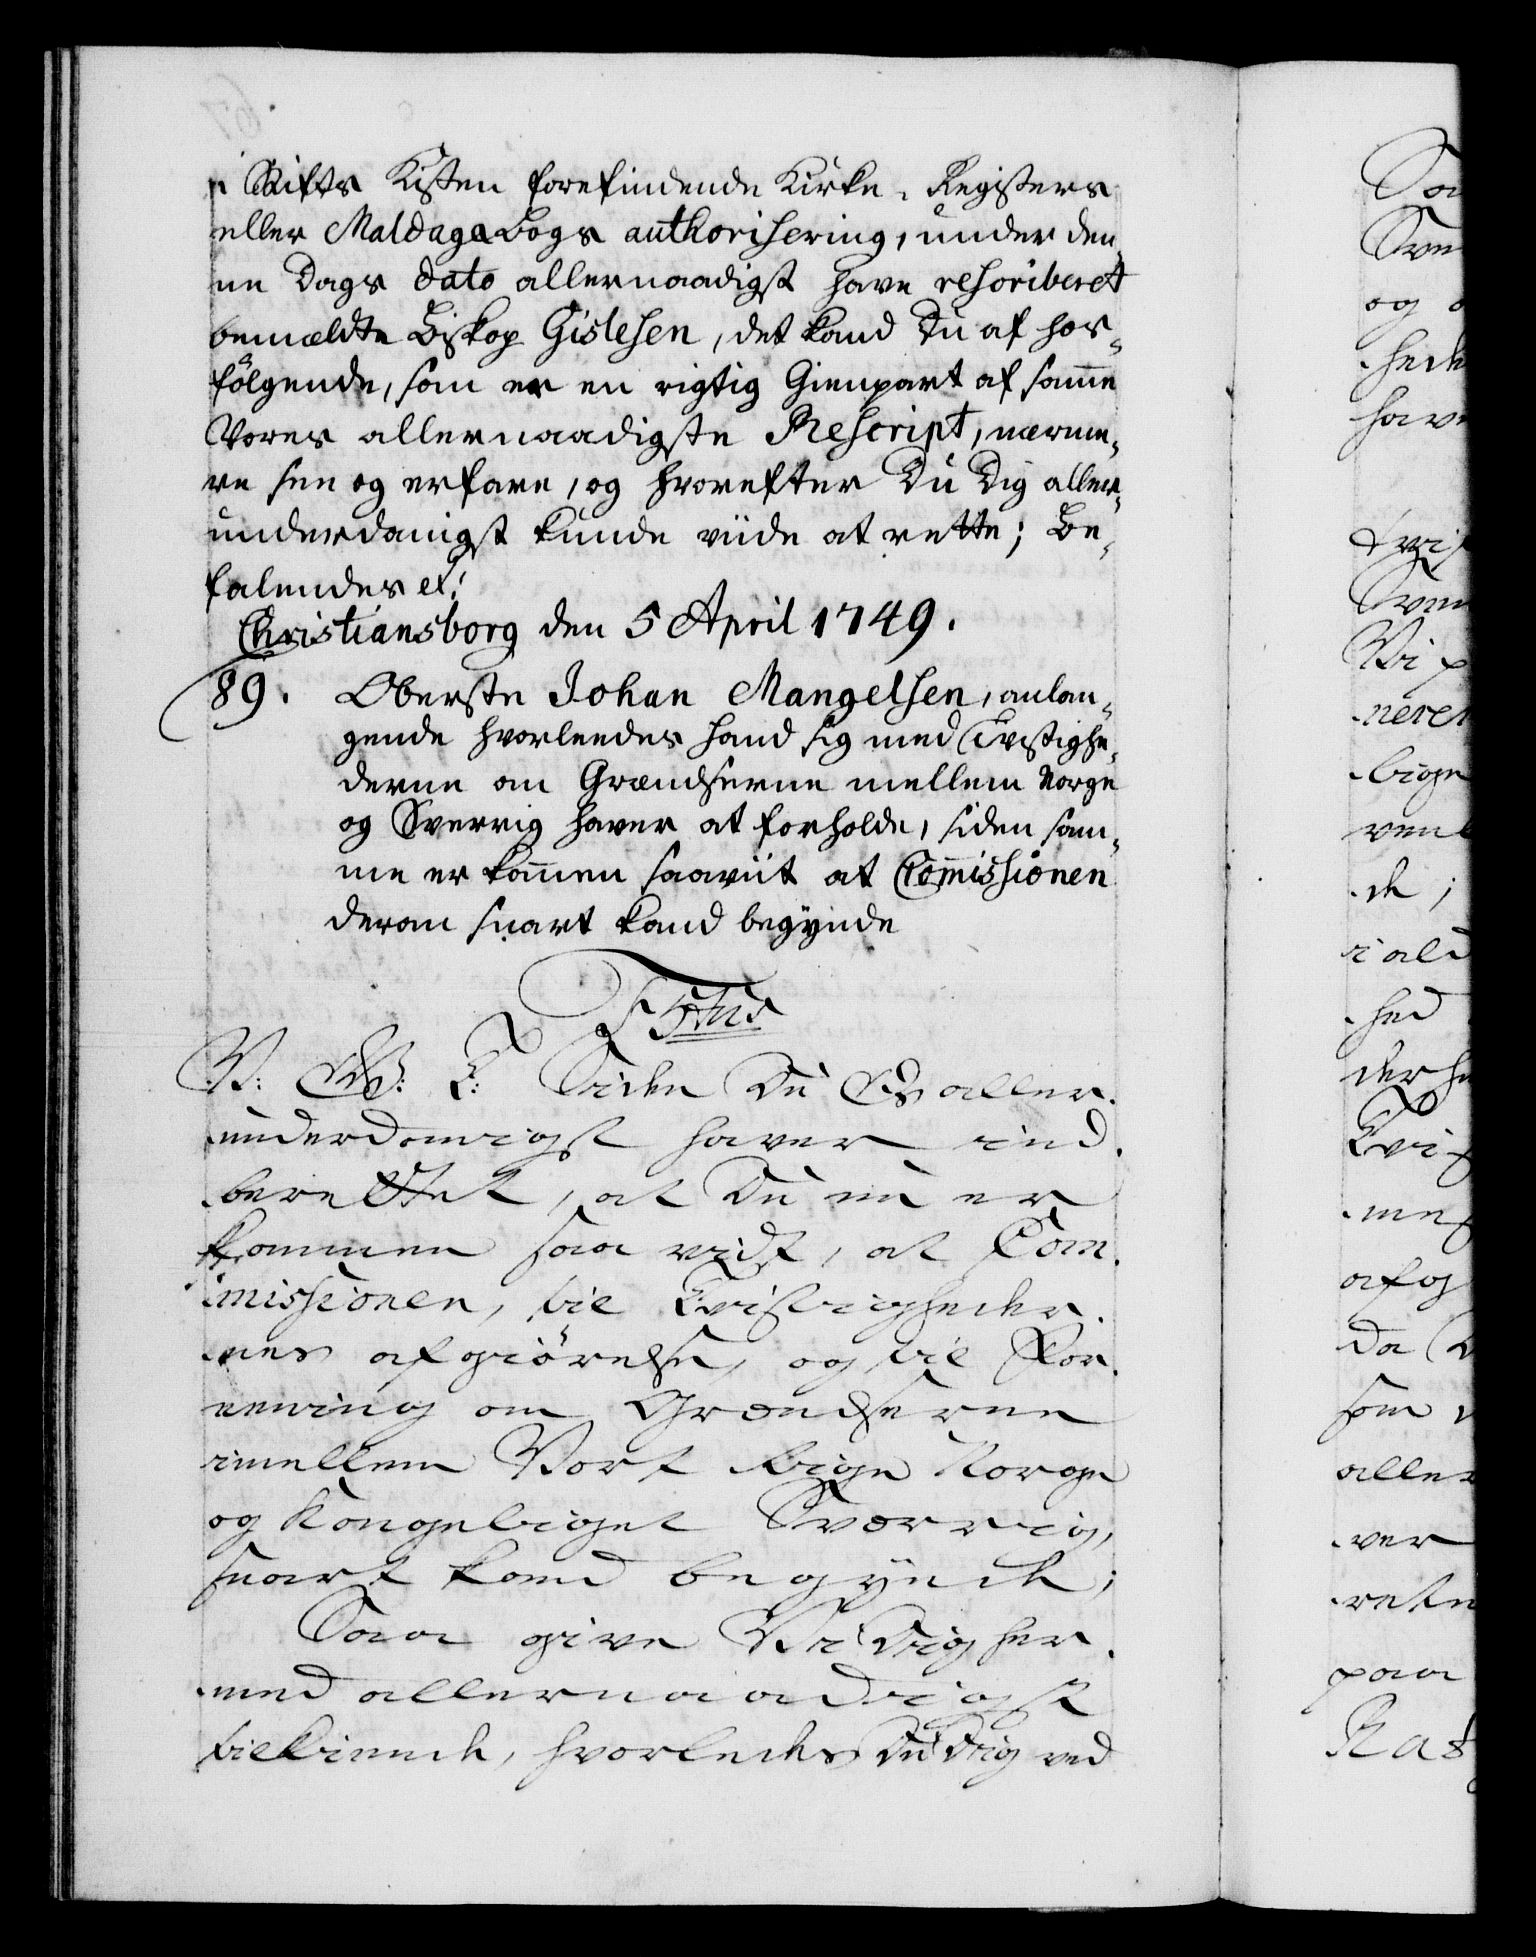 i Stifts Kisten forefindende Kirke-Registers
eller Maldage Bogs authorisering, under den-
ne Dags dato allernaadigst have rescriberet
bemældte Biskop Gislesen, det kand Du af hos-
fölgende, som er en rigtig Gienpart af samme
Vores allernaadigste Rescript, nærme-
re see og erfare, og hvorefter Du Dig aller-
underdanigst kunde viide at rette; Be-
falendes etc:
Christiansborg den 5 April 1749.
89. Oberste Johan Mangelsen, anlan-
gende hvorleedes hand sig med Tvistighe-
derne om Grændserne mellem Norge
og Sverrig haver at forholde, siden sam-
me er kommen saaviit at Commissionen
derom snart kand begÿnde
V: G: T: Siden Du Os aller-
underdanigst haver ind-
berettet, at Du nu er
kommen saa vidt, at Com-
missionen, til Tvistigheder-
nes afgiörelse, og til For-
eening om Grændserne
imellem Vort Rige Norge
og Kongeriget Sverrig,
snart kand begÿnde;
Saa give Vi Dig her-
med allernaadigst
tilkiende, hvorledes Du Dig ved
Sve
og
-hede
have
Sven
Vi
-neren
-lige
-de;
-hed
der
Tvi
-me
af og
da
som
aller
-ver
paa